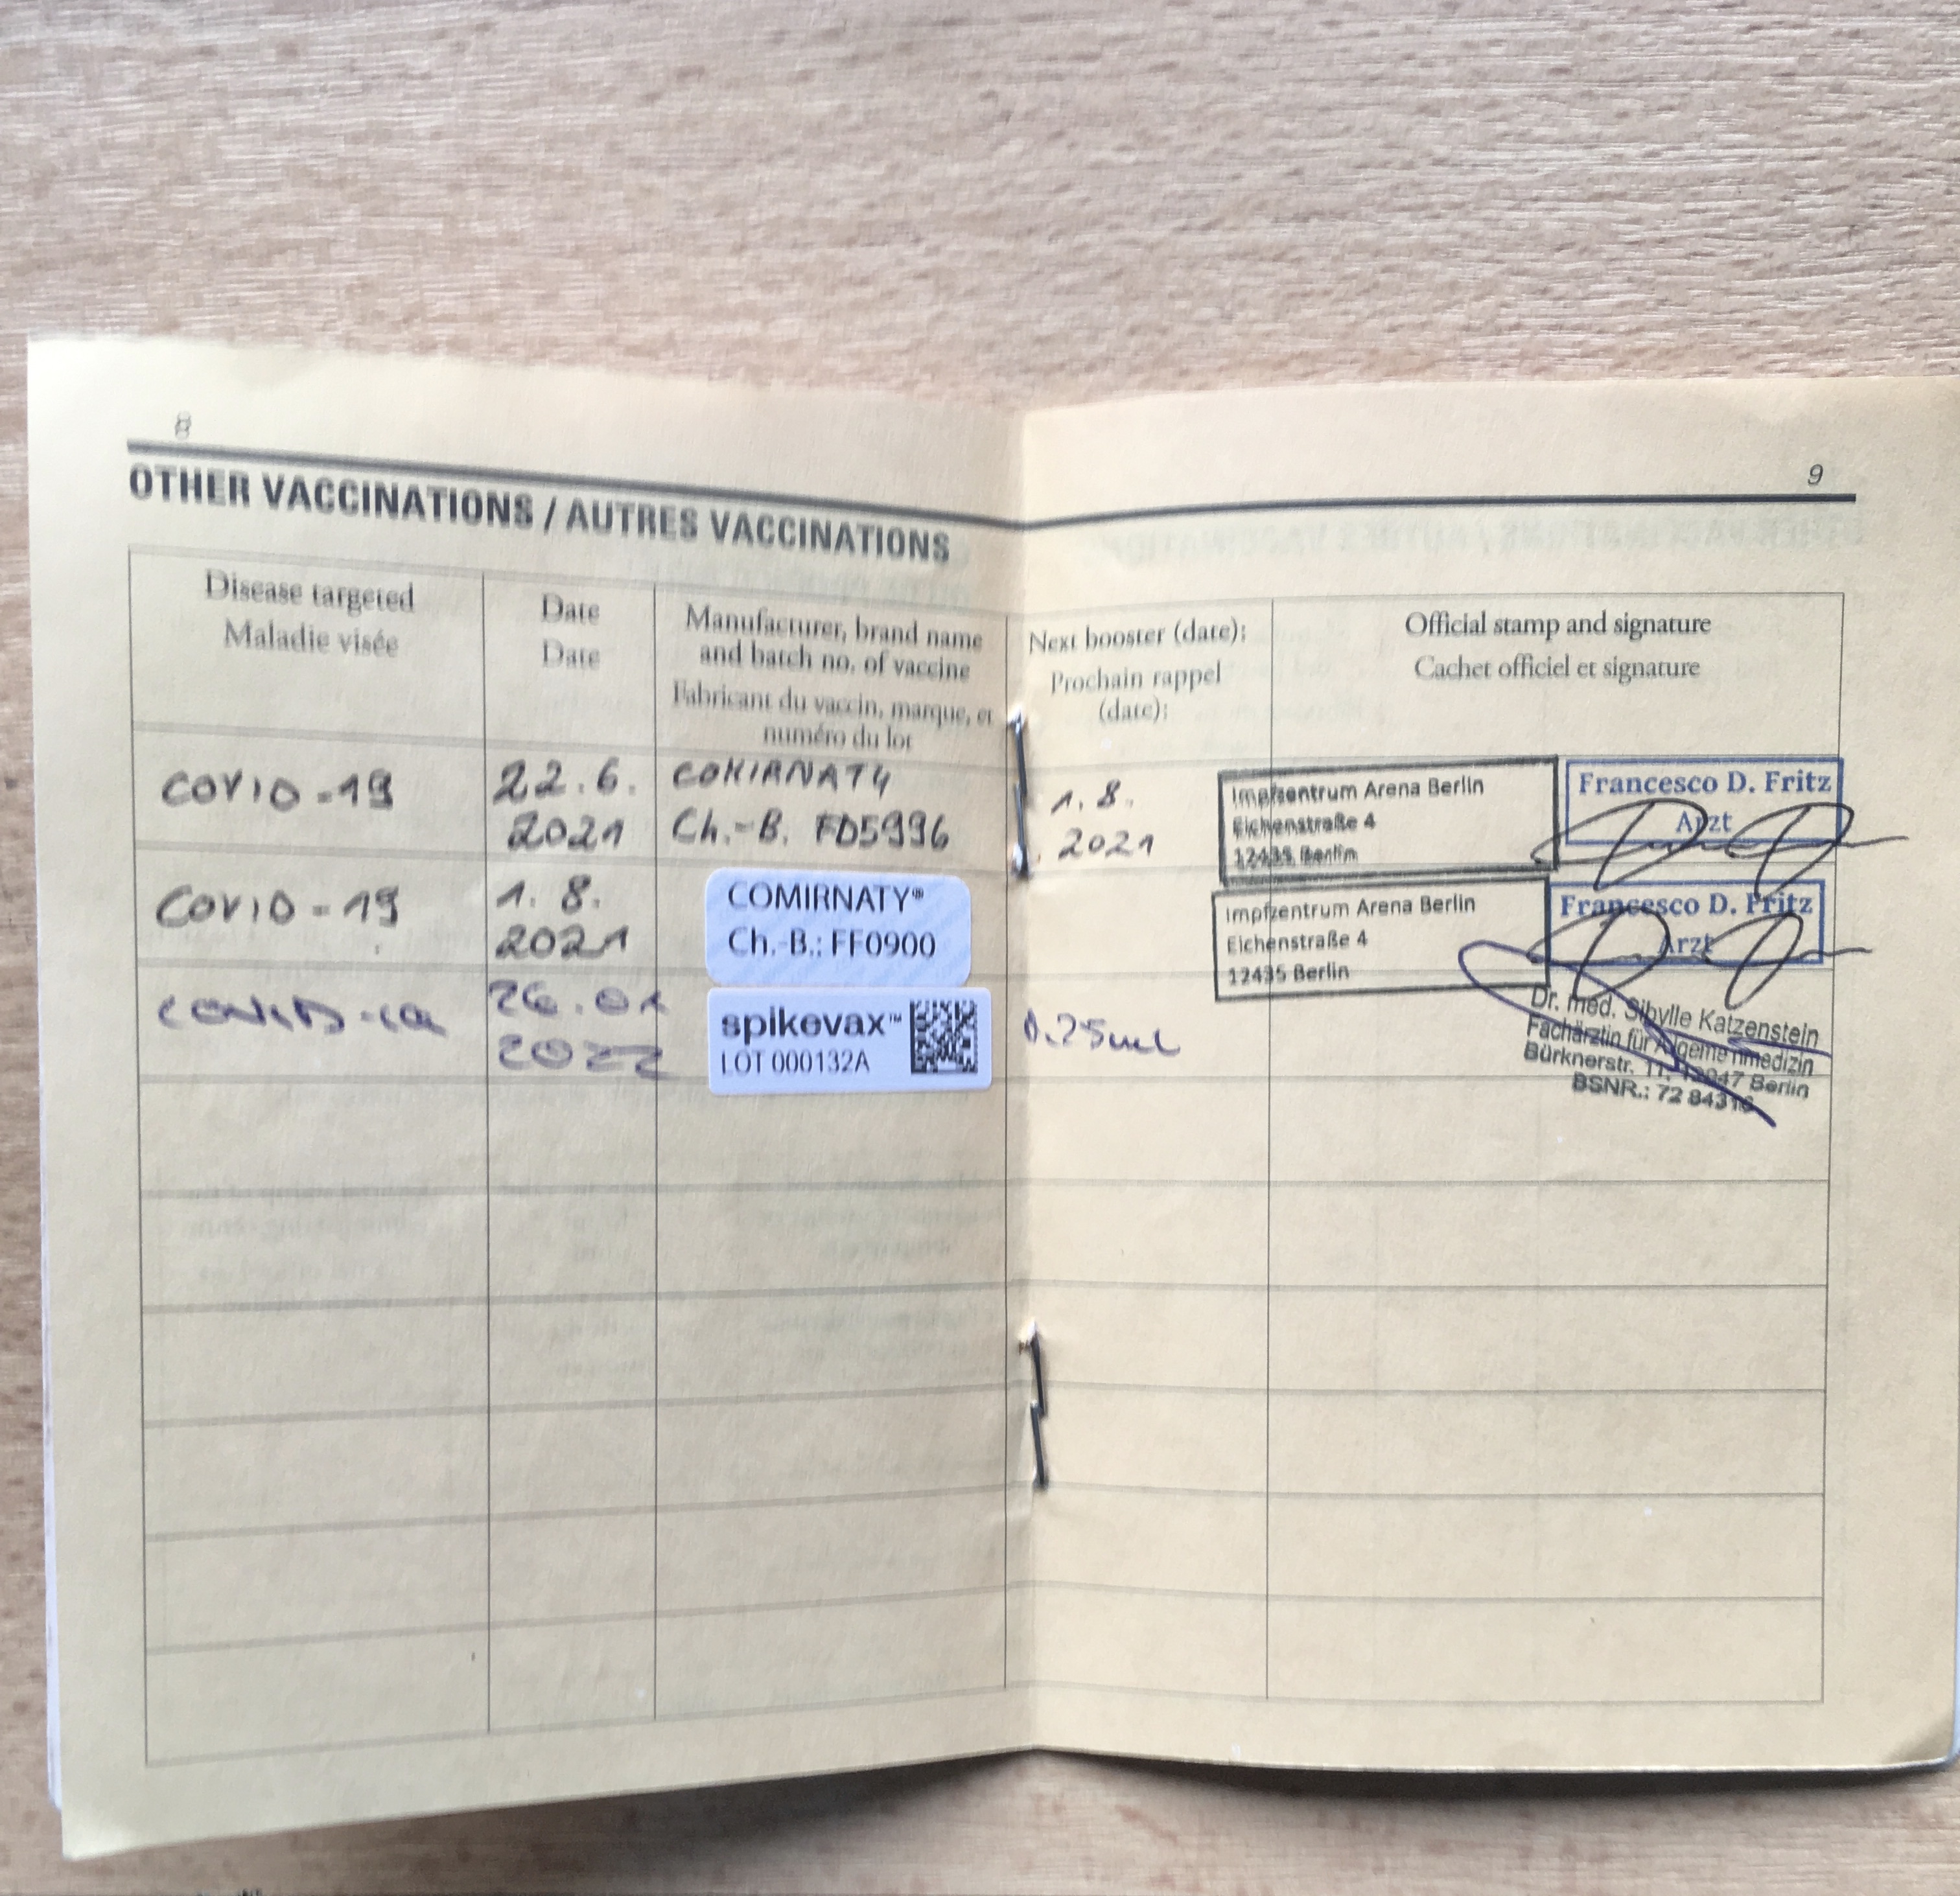 8
9
OTHER VACCINATIONS / AUTRES VACCINATIONS
Disease targeted
Maladie visée
Date
Date
Manufacturer, brand name
and batch no. of vaccine
Fabricant du vaccin, marque, et
numéro du lot
Next booster (date):
Prochain rappel
(date):
Official stamp and signature
Cachet officiel et signature
COVID-19
22.6.
2021
COMIRNATY
Ch.-B. FD5996
1.8.
2021
Impfzentrum Arena Berlin
Eichenstraße 4
12435 Berlin
Francesco D. Fritz
Arzt
COVID-19
1.8.
2021
COMIRNATY®
Ch.-B.: FF0900
Impfzentrum Arena Berlin
Eichenstraße 4
12435 Berlin
Francesco D. Fritz
Arzt
COVID-19
26.01
2022
spikevax™
LOT 000132A
0.25ml
Dr. med. Sibylle Katzenstein
Fachärztin für Allgemeinmedizin
Bürknerstr. 11, 12047 Berlin
BSNR.: 72 84316